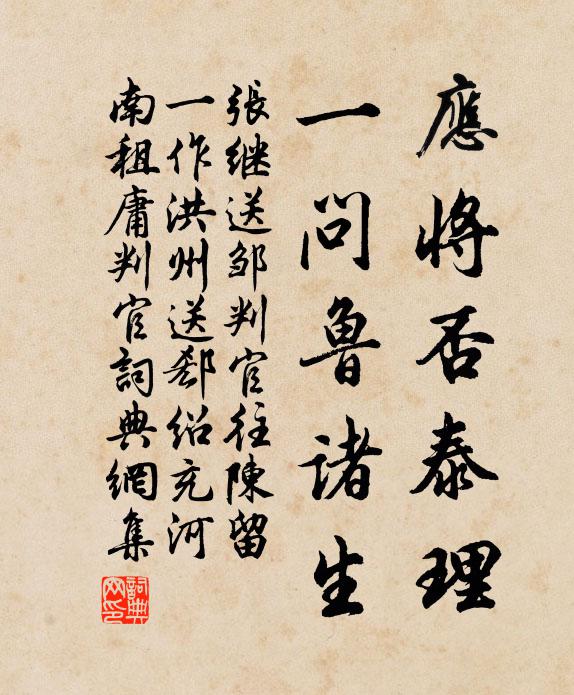 應將否泰理
一問鲁诸生
張继送邹判官往陳留
一作洪州送郄绍充河
南租庸判官詞典網集
詞典网印